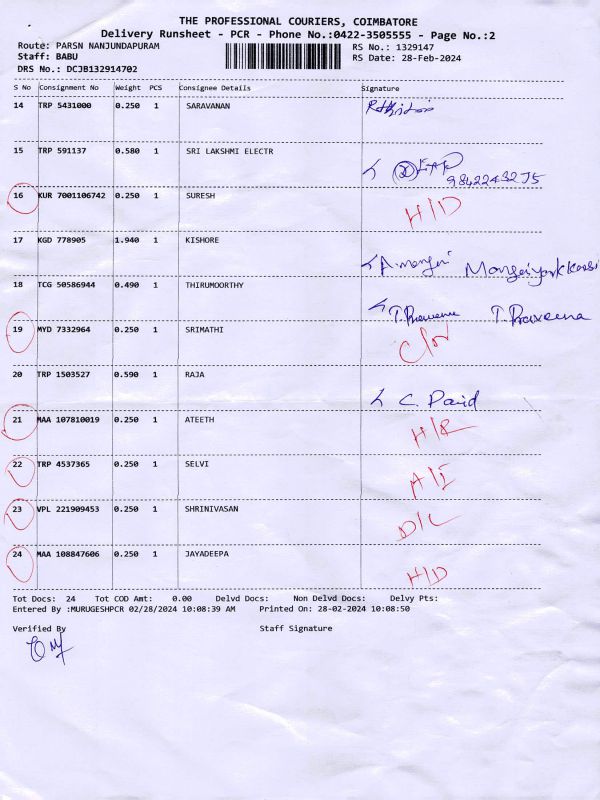 THE PROFESSIONAL COURIERS, COIMBATORE
Delivery Runsheet - PCR - Phone No.:0422-3505555 - Page No.:2
Route: PARSN NANJUNDAPURAM RS No.: 1329147
Staff: BABU RS Date: 28-Feb-2024
DRS No.: DCJB132914702
S No Consignment No Weight PCS Consignee Details Signature
14 TRP 5431000 0.250 1 SARAVANAN
15 TRP 591137 0.580 1 SRI LAKSHMI ELECTR
9842243275
16 KUR 7001106742 0.250 1 SURESH H/D
17 KGD 778905 1.940 1 KISHORE
A.mangai
18 TCG 50586944 0.490 1 THIRUMOORTHY
T. Praveena T. Praveena
19 MYD 7332964 0.250 1 SRIMATHI
20 TRP 1503527 0.590 1 RAJA
C. David
21 MAA 107810019 0.250 1 ATEETH H/R
22 TRP 4537365 0.250 1 SELVI A/I
23 VPL 221909453 0.250 1 SHRINIVASAN D/L
24 MAA 108847606 0.250 1 JAYADEEPA H/D
Tot Docs: 24 Tot COD Amt: 0.00 Delvd Docs: Non Delvd Docs: Delvy Pts:
Entered By :MURUGESHPCR 02/28/2024 10:08:39 AM Printed On: 28-02-2024 10:08:50
Verified By Staff Signature